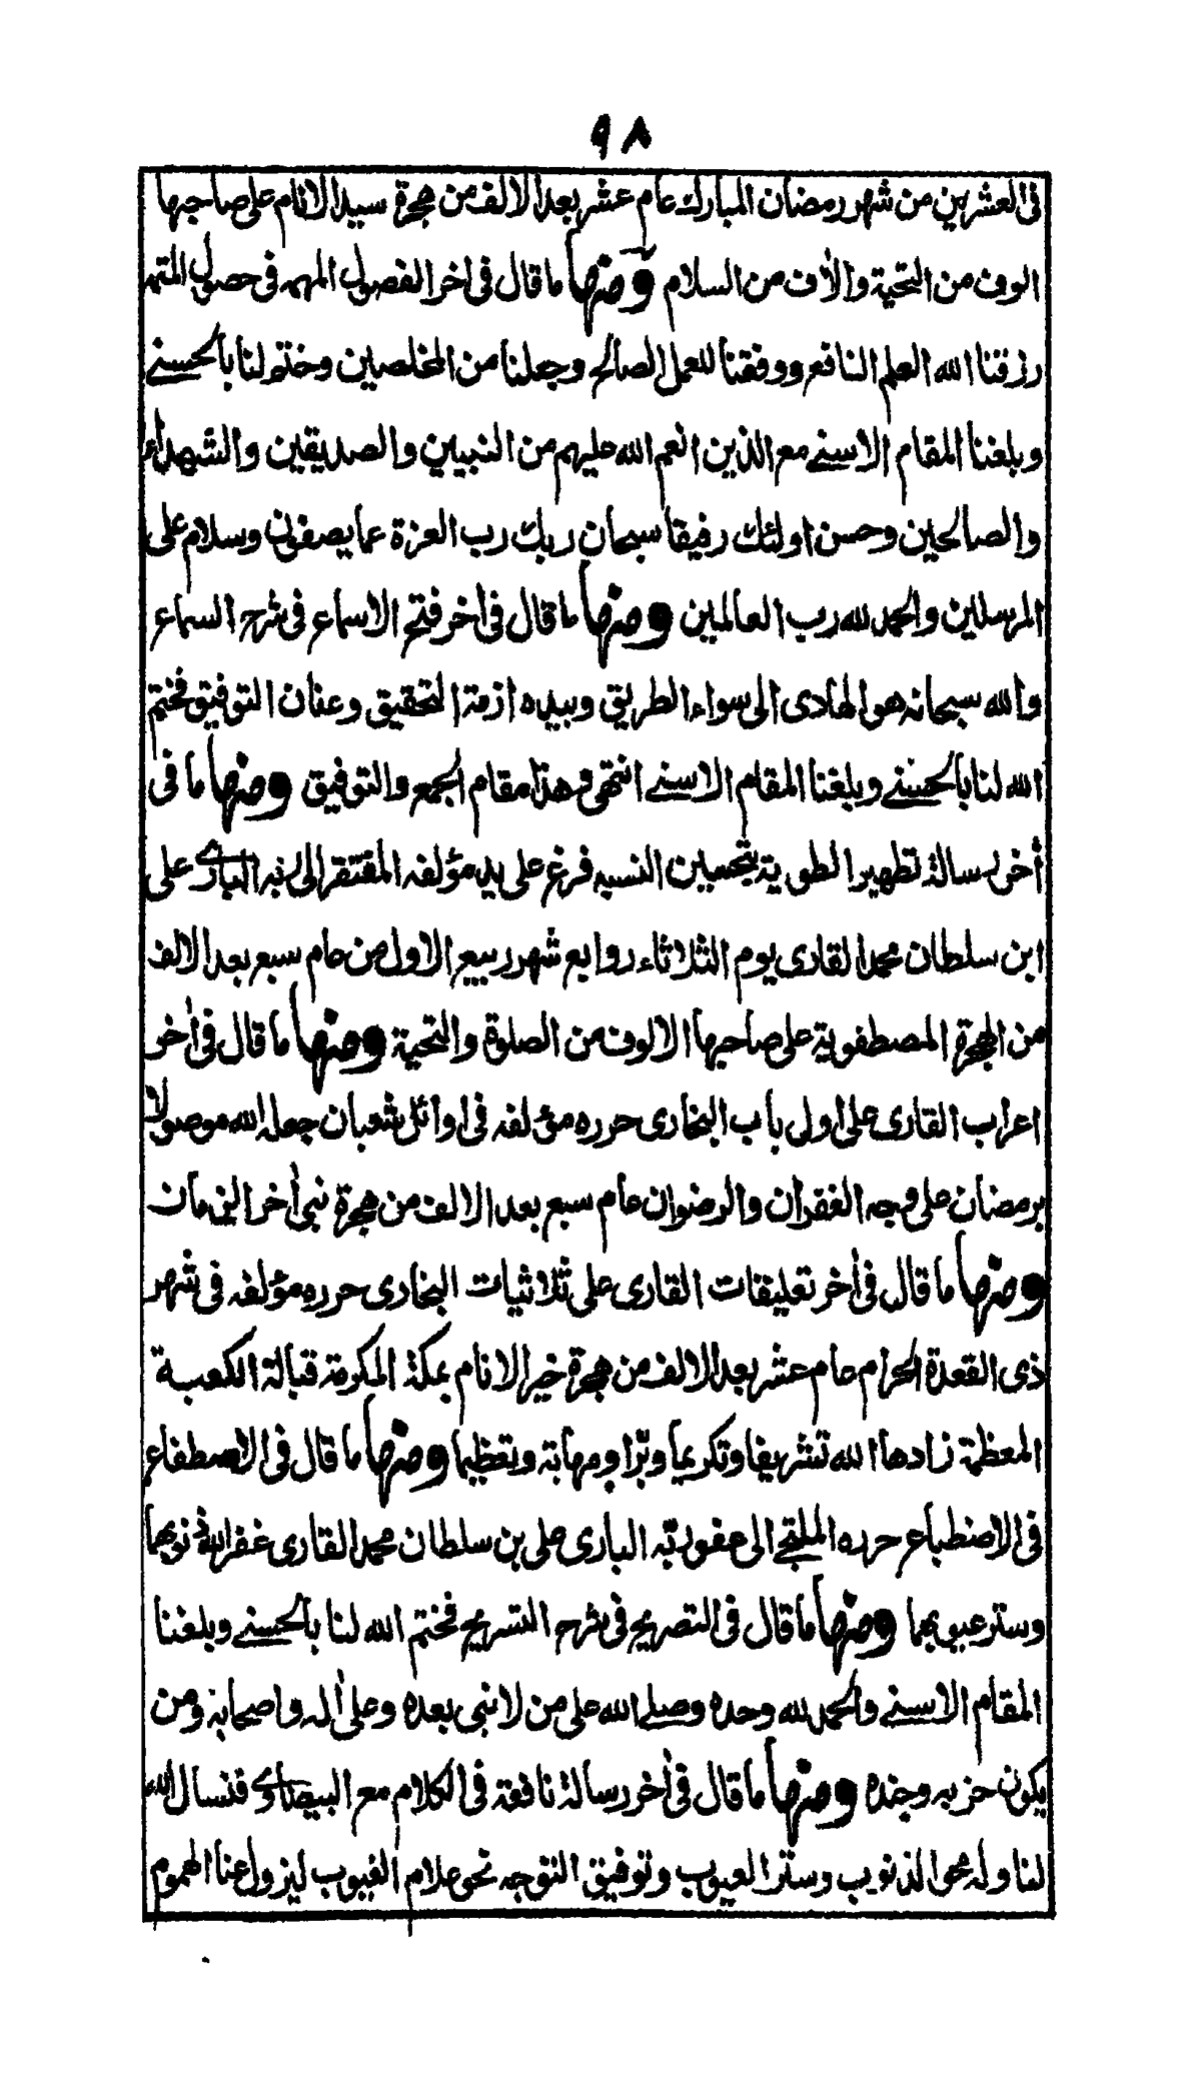 ٩٨
فى العشرين من شهر رمضان المبارك عام عشر بعد الالف من هجرة سيد الانام على صاحبها
الوف من التحية والاف من السلام ومنها ما قال فى اخر الفصول المهمه فى حصول المتمه
رزقنا الله العلم النافع ووفقنا للعمل الصالح وجعلنا من المخلصين وختم لنا بالحسنے
وبلغنا المقام الاسنے مع الذين انعم الله عليهم من النبيين والصديقين والشهداء
والصالحين وحسن اولئك رفيقا سبحان ربك رب العزة عما يصفون وسلام على
المرسلين والحمد لله رب العالمين ومنها ما قال فى اخر فتح الاسماع فى شرح السماع
والله سبحانه هو الهادى الى سواء الطريق وبيده ازمة التحقيق وعنان التوفيق فختم
الله لنا بالحسنے وبلغنا المقام الاسنے انتهى وهذا مقام الجمع والتوفيق ومنها ما فى
أخر رسالة تطهير الطوية بتحسين النسيه فرغ على يد مؤلفه المفتقر الى ربه البارے على
ابن سلطان محمد القارى يوم الثلاثاء روابع شهر ربيع الاول من عام سبع بعد الالف
من الهجرة المصطفوية على صاحبها الالوف من الصلوة والتحية ومنها ما قال فى أخر
اعراب القارى على اولى باب البخارى حرره مؤلفه فى اوائل شعبان جعله الله موصولا
برمضان على وجه الغفران والرضوان عام سبع بعد الالف من هجرة نبى أخر الزمان
ومنها ما قال فى أخر تعليقات القارى على ثلاثيات البخارى حرره مؤلفه فى شهر
ذى القعدة الحرام عام عشر بعد الالف من هجرة خير الانام بمكة المكرمة قبالة الكعبة
المعظمة زادها الله تشريفا وتكريما وبرّا ومهابة وتعظيما ومنها ما قال فى الاصطفاع
فى الاضطباع حرره الملتجے الى عفو ربّه البارى على بن سلطان محمد القارى غفر الله ذنوبهما
وستر عيوبهما ومنها ما قال فى التصريح فى شرح التسريح فختم الله لنا بالحسنے وبلغنا
المقام الاسنے والحمد لله وحده وصلے الله على من لا نبى بعده وعلى أله واصحابه ومن
يكون حزبه وجنده ومنها ما قال فى أخر رسالة نافعة فى الكلام مع البيضاوے فنسال الله
لنا وله محو الذنوب وستر العيوب وتوفيق التوجه نحو علام الغيوب ليزول عنا الهموم